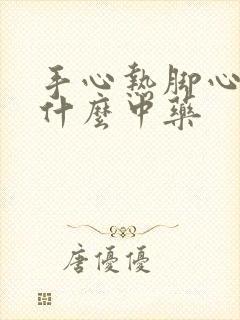 手心熱脚心
什麼中藥
唐優優